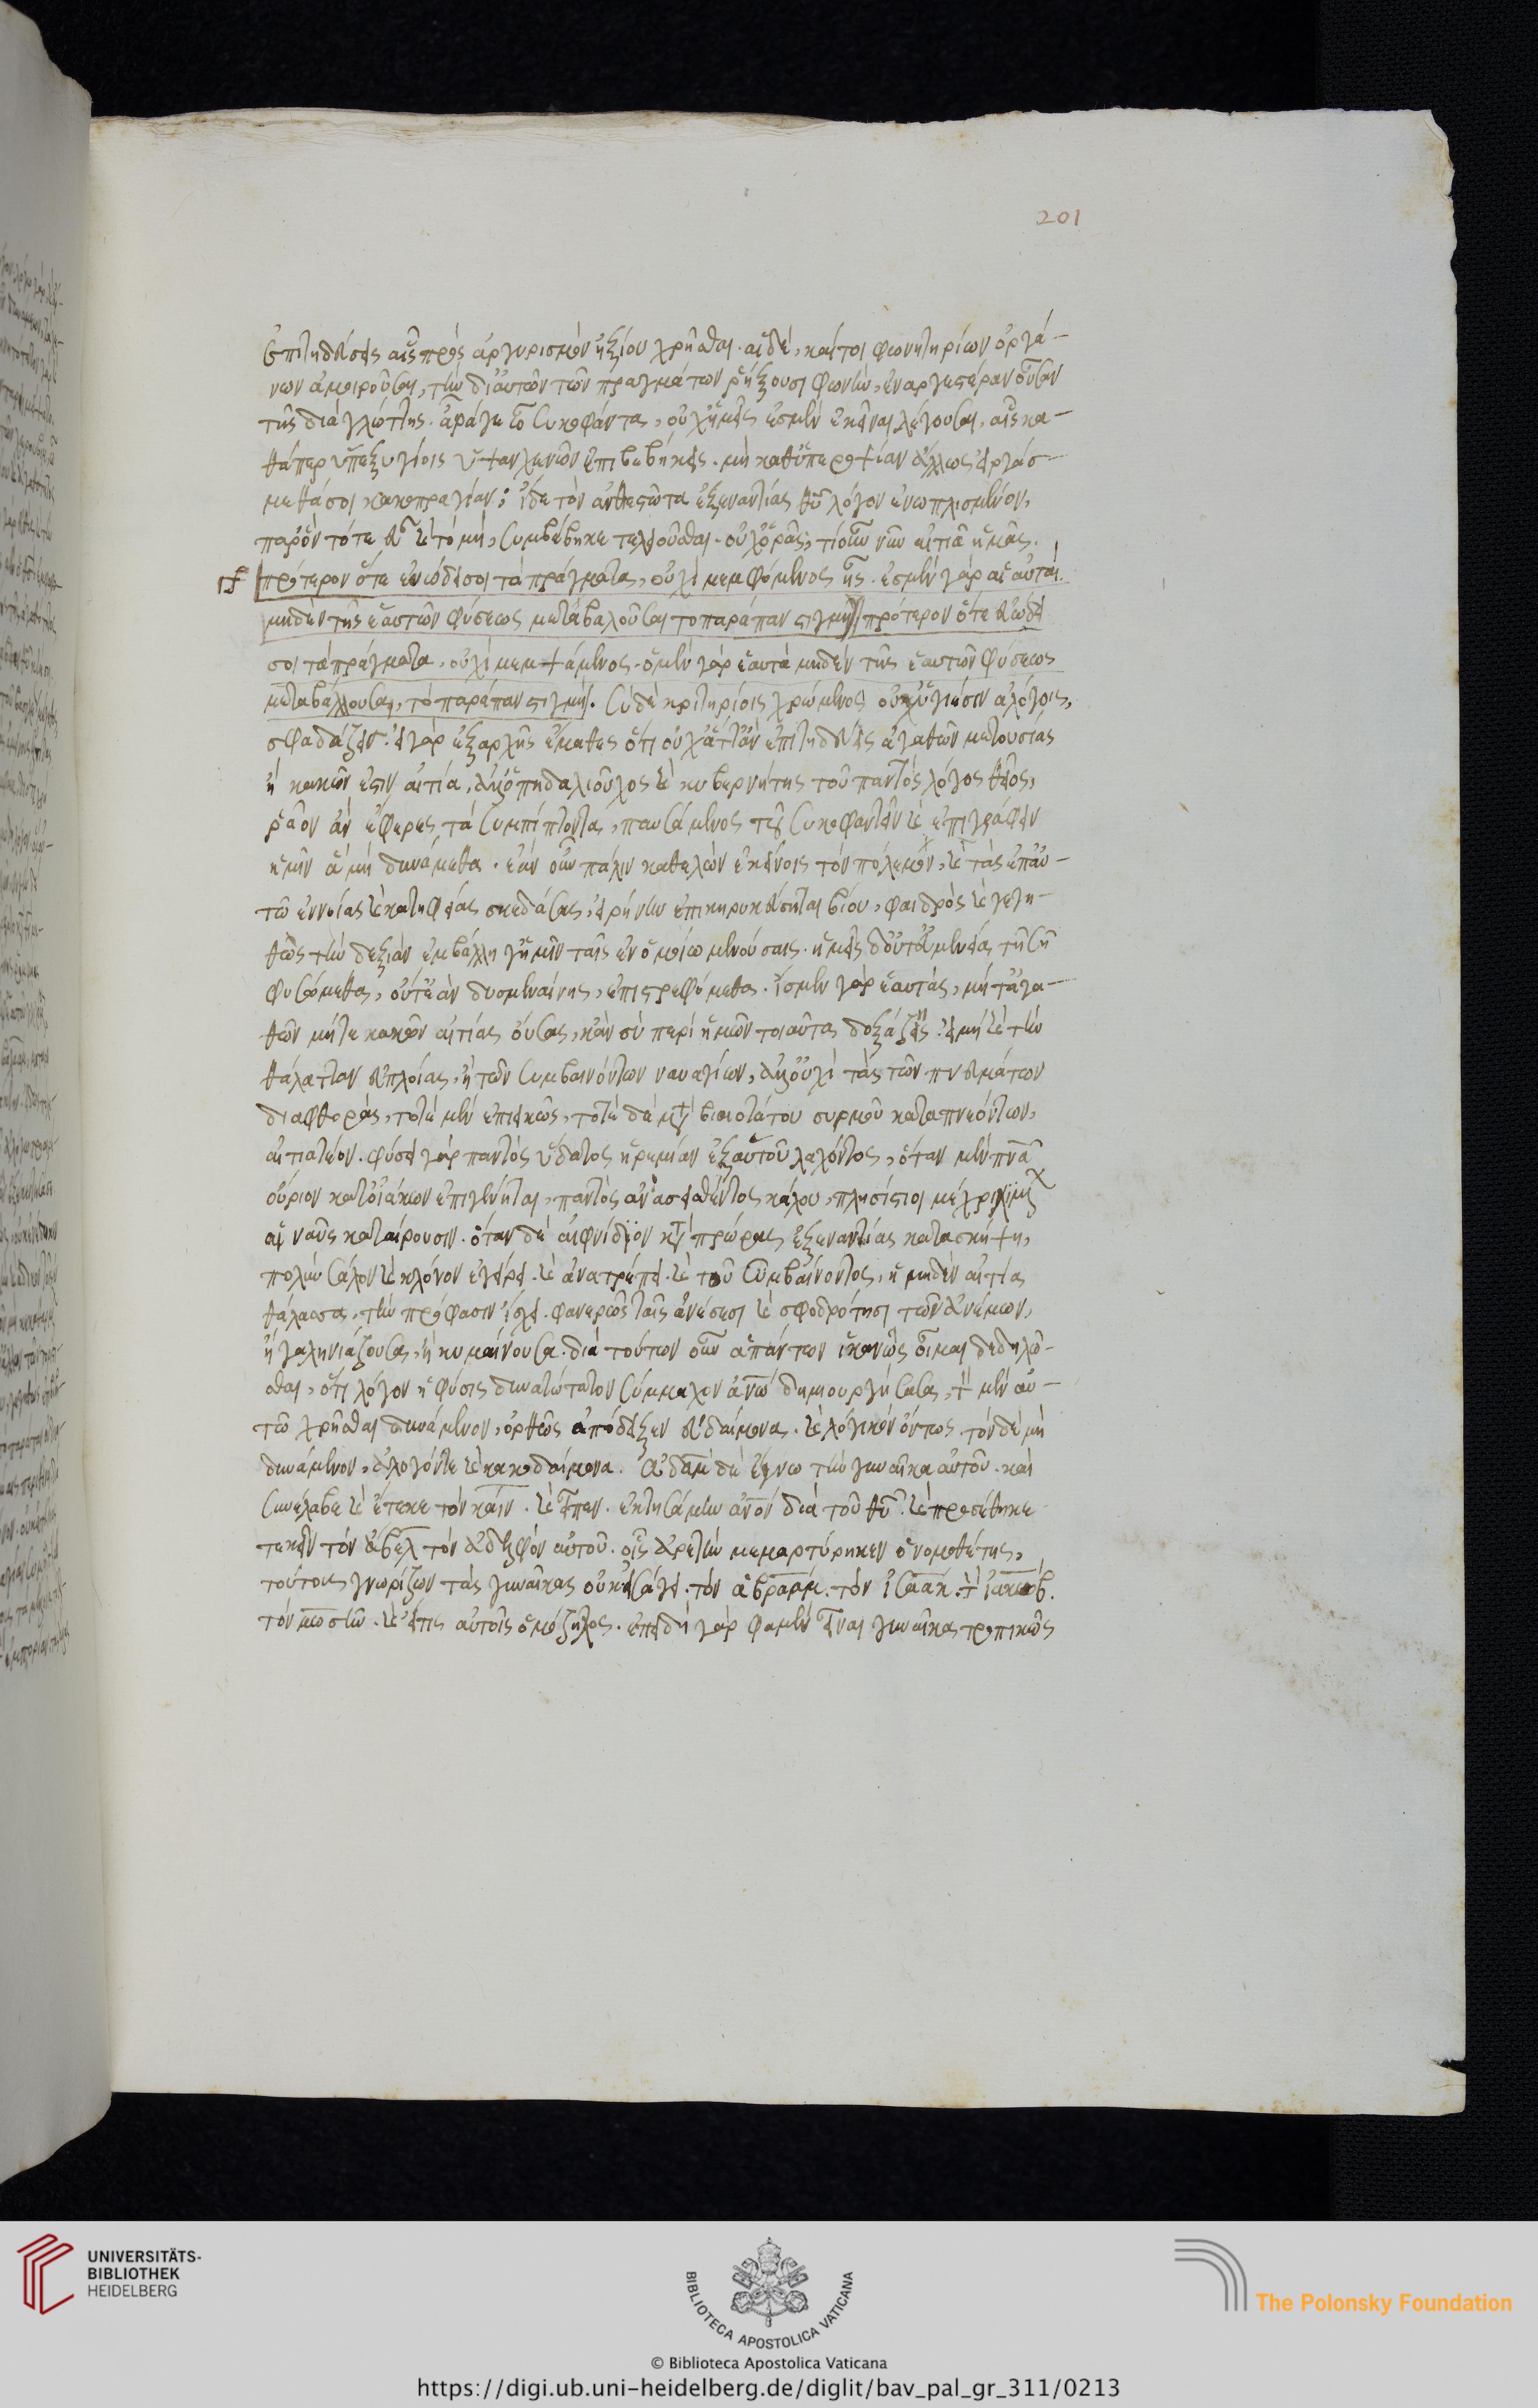 201
ἐπιτηδεύσεις αἷς πρὸς ἀργυρισμὸν ἠξίου χρῆσθαι. αἱ δὲ, καίτοι φωνητηρίων ὀργά-
νων ἀμοιροῦσαι, τὴν δι' αὐτῶν τῶν πραγμάτων ῥήξουσι φωνὴν, ἐναργεστέραν οὖσαν
τῆς διὰ γλώττης. ἆρά γε ὦ συκοφάντα, οὐχ ἡμεῖς ἐσμὲν ἐκεῖναι λέγουσαι, αἷς κα-
θάπερ ὑποζυγίοις ὑψαυχενῶν ἐπιβεβήκεις. μὴ καθ' ὑπεροψίαν ἄλλως εἰργάσ-
μεθά σοι κακοπραγίαν; ἴδε τὸν ἀνθεστῶτα ἐξεναντίας θῦ λόγον ἐνωπλισμένον,
παρ' ὃν τότε εὖ καὶ τὸ μὴ, συμβέβηκε τελειοῦσθαι. οὐχ ὁρᾶς; τί οὖν νῦν αἰτιᾷ ἡμᾶς.
πρότερον ὅτε ἐνώδει σοι τὰ πράγματα, οὐχὶ μεμφόμενος ἦς. ἐσμὲν γὰρ αἱ αὐταὶ
μηδὲν τῆς ἑαυτῶν φύσεως μεταβαλοῦσαι τοπαράπαν στιγμὴν πρότερον ὅτε εὐώδει
σοι τὰ πράγματα, οὐχὶ μεμψάμενος. ὁ μὲν γὰρ ἑαυτὰ μηδὲν τῆς ἑαυτῶν φύσεως
μεταβάλλουσαι, τὸ παράπαν στιγμήν. σὺ δὲ κριτηρίοις χρώμενος οὐχ ὑγιέσιν ἀλόγοις,
σφαδάζεις. εἰ γὰρ ἐξαρχῆς ἔμαθες ὅτι οὐχ ἅττ' ἂν ἐπιτηδεύεις ἀγαθῶν μετουσίας
ἢ κακῶν ἐστιν αἰτία, ἀλλ' ὁ πηδαλιοῦχος καὶ κυβερνήτης τοῦ παντὸς λόγος θεῖος,
ῥᾷον ἂν ἔφερες τὰ συμπίπτοντα, παυσάμενος τοῦ συκοφαντεῖν καὶ ἐπιγράφειν
ἡμῖν ἃ μὴ δυνάμεθα. ἐὰν οὖν πάλιν καθελὼν ἐκείνοις τὸν πόλεμον, καὶ τὰς ἐπ' αὐ-
τῷ ἐννοίας καὶ κατηφείας σκεδάσας, εἰρήνην ἐπικηρυκεύσηται βίου, φαιδρὸς καὶ γεγη-
θὼς τὴν δεξιὰν ἐμβάλλῃ γ' ἡμῖν ταῖς ἐν ὁμοίῳ μενούσαις. ἡμεῖς δ' οὔτ' εὐμενείᾳ τῇ σῇ
φυσώμεθα, οὔτ' ἐὰν δυσμεναίνῃς, ἐπιστρεφόμεθα. ἴσμεν γὰρ ἑαυτὰς, μήτ' ἀγα-
θῶν μήτε κακῶν αἰτίας οὔσας, κἂν σὺ περὶ ἡμῶν τοιαῦτα δοξάζῃς. εἰ μὴ καὶ τὴν
θάλατταν εὐπλοίας, ἢ τῶν συμβαινόντων ναυαγίων, ἀλλ' οὐχὶ τὰς τῶν πνευμάτων
διαφθορὰς, τοτὲ μὲν ἐπιεικῶς, τοτὲ δὲ μετὰ βιαιοτάτου συρμοῦ καταπνεόντων,
αἰτιατέον. φύσει γὰρ παντὸς ὕδατος ἠρεμίαν ἐξ αὐτοῦ λαχόντος, ὅταν μὲν πνᾶ
οὔριον κατ' οἰάκων ἐπιγένηται, παντὸς ἀνασεισθέντος κάλου, πλησίστιοι μέχρι λιμένων
αἱ νῆες καταίρουσιν. ὅταν δὲ αἰφνίδιον κατὰ πρώρας ἐξεναντίας κατασκήψῃ,
πολὺν σάλον καὶ κλόνον ἐγείρει. καὶ ἀνατρέπει. καὶ τοῦ συμβαίνοντος, ἡ μηδὲν αἰτία
θάλασσα, τὴν πρόφασιν ἴσχει. φανερῶς ταῖς ἀνέσεσι καὶ σφοδρότησι τῶν ἀνέμων,
ἢ γαληνιάζουσα, ἢ κυμαίνουσα. διὰ τούτων οὖν ἁπάντων ἱκανῶς οἶμαι δεδηλῶ-
σθαι, ὅτι λόγον ἡ φύσις δυνατώτατον σύμμαχον ἀνῷ δημιουργήσασα, τὸν μὲν αὐ-
τῷ χρῆσθαι δυνάμενον, ὀρθῶς ἀπέδειξεν εὐδαίμονα. καὶ λογικὸν ὄντως, τὸν δὲ μὴ
δυνάμενον, ἄλογόν τε καὶ κακοδαίμονα. Ἀδὰμ δὲ ἔγνω τὴν γυναῖκα αὐτοῦ. καὶ
συνέλαβε καὶ ἔτεκε τὸν κάϊν. καὶ εἶπεν. ἐκτησάμην ἀνὸν διὰ τοῦ θῦ. καὶ προσέθηκε
τεκεῖν τὸν ἄβελ τὸν ἀδελφὸν αὐτοῦ. οἷς ἀρετὴν μεμαρτύρηκεν ὁ νομοθέτης,
τούτους γνωρίζων τὰς γυναῖκας οὐκ εἰσάγει. τὸν ἀβραάμ. τὸν ἰσαάκ. τὸν ἰακώβ.
τὸν μωσῆν. καὶ εἴ τις αὐτοῖς ὁμόζηλος. ἐπειδὴ γὰρ φαμὲν εἶναι γυναῖκας τροπικῶς
UNIVERSITÄTS-
BIBLIOTHEK
HEIDELBERG
BIBLIOTECA APOSTOLICA VATICANA
The Polonsky Foundation
© Biblioteca Apostolica Vaticana
https://digi.ub.uni-heidelberg.de/diglit/bav_pal_gr_311/0213